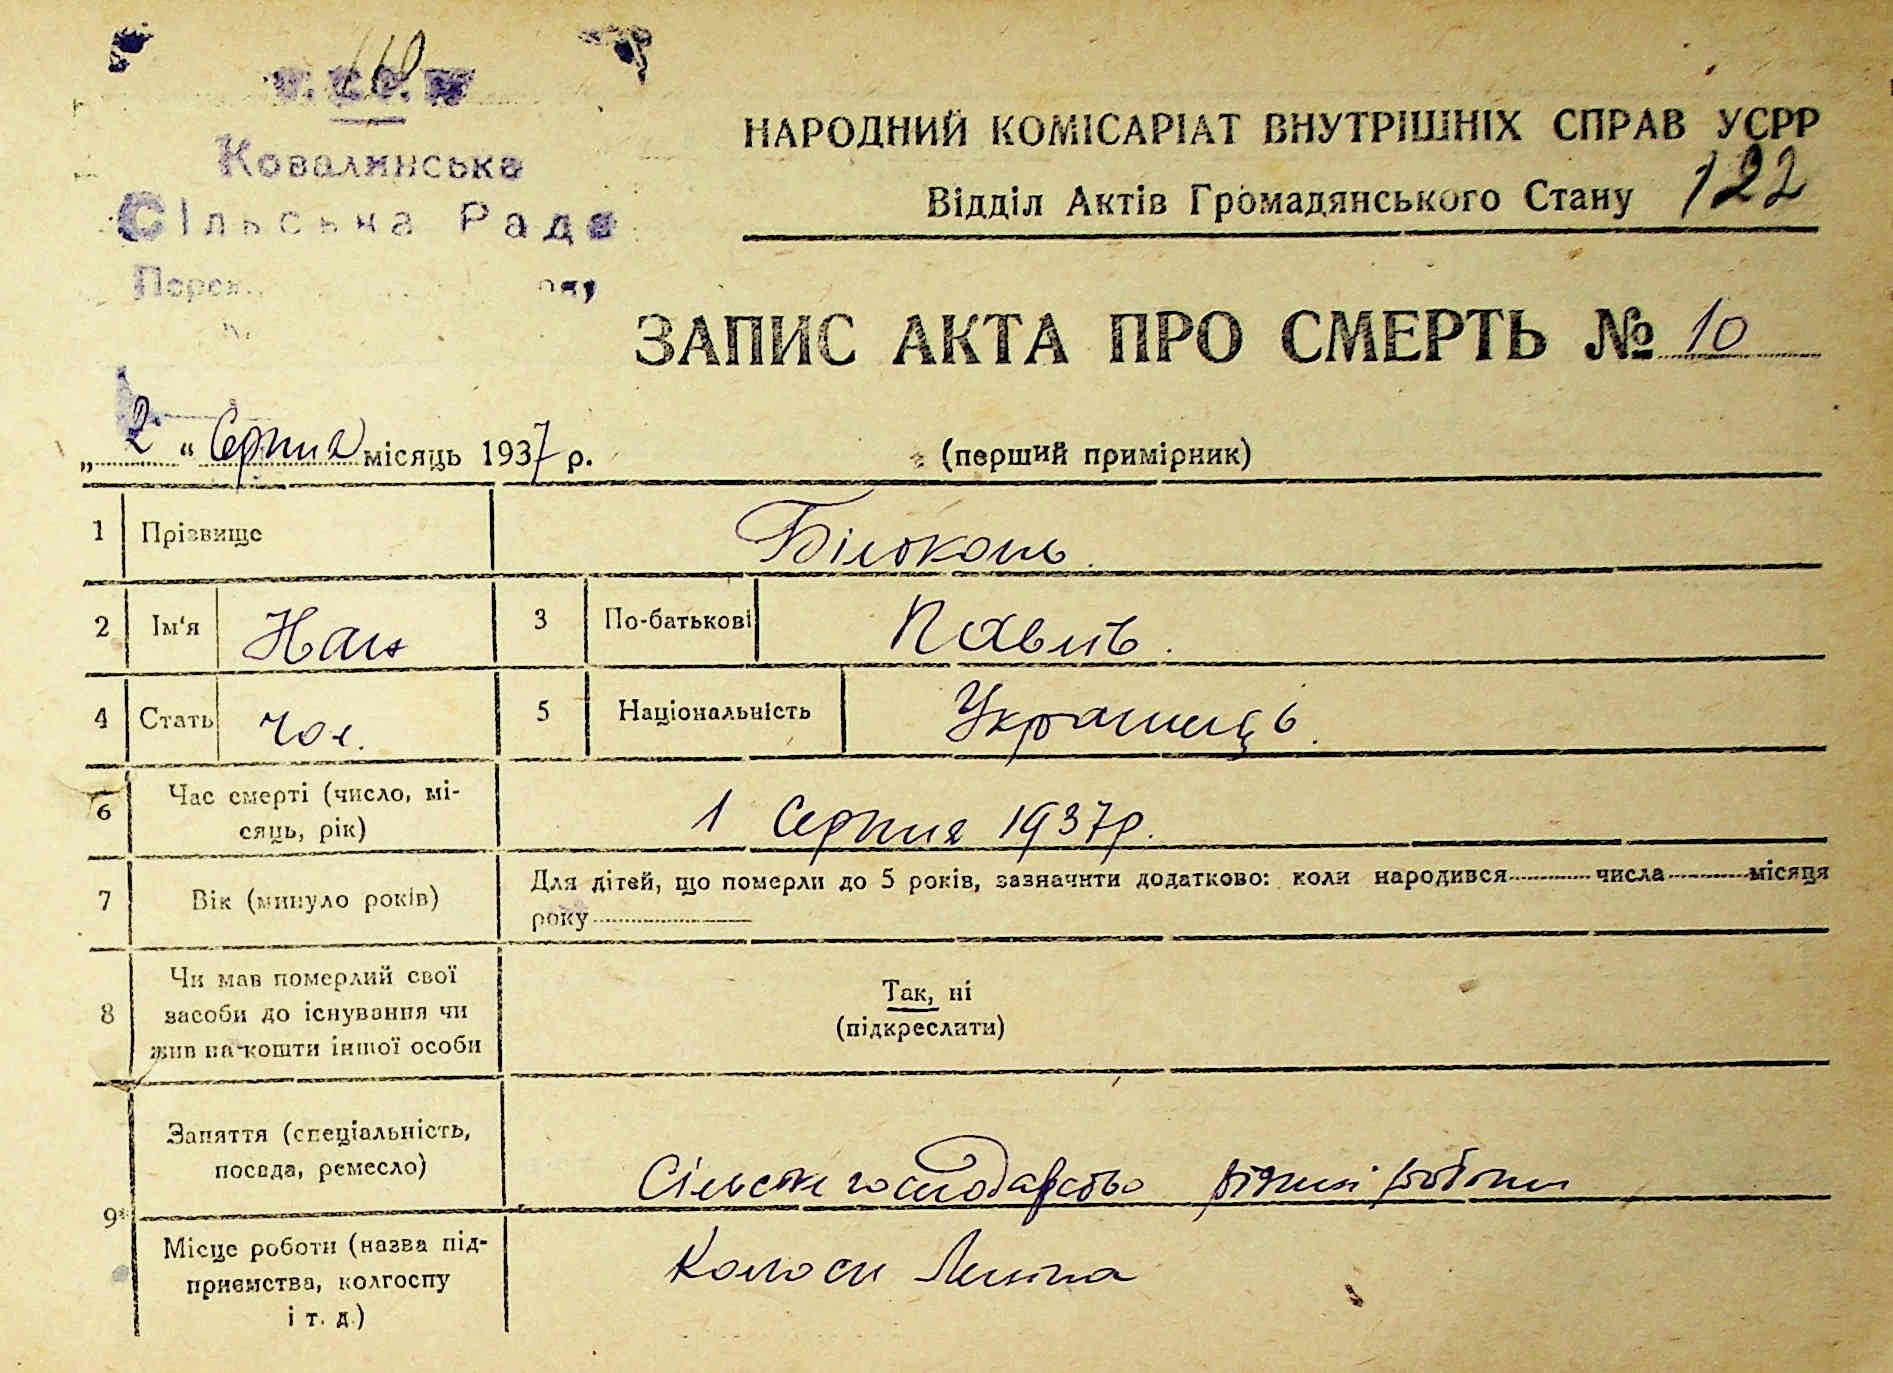 110
У.С.Р.Р
Ковалинська
Сільська Рада
НАРОДНИЙ КОМІСАРІАТ ВНУТРІШНІХ СПРАВ УСРР
Відділ Актів Громадянського Стану 122
ЗАПИС АКТА ПРО СМЕРТЬ № 10
„2“ Серпня місяць 1937 р. (перший примірник)
1 Прізвище Білоконь.
2 Ім'я Іван 3 По-батькові Павлів.
4 Стать чол. 5 Національність Українець.
6 Час смерті (число, мі-
сяць, рік) 1 Серпня 1937р.
7 Вік (минуло років) Для дітей, що померли до 5 років, зазначити додатково: коли народився числа місяця
року
8 Чи мав померлий свої
засоби до існування чи
жив на кошти іншої особи
Так, ні
(підкреслити)
9 Заняття (спеціальність,
посада, ремесло) господарство різні роботи
Місце роботи (назва під-
приємства, колгоспу
і т. д.)
Колоси Леніна